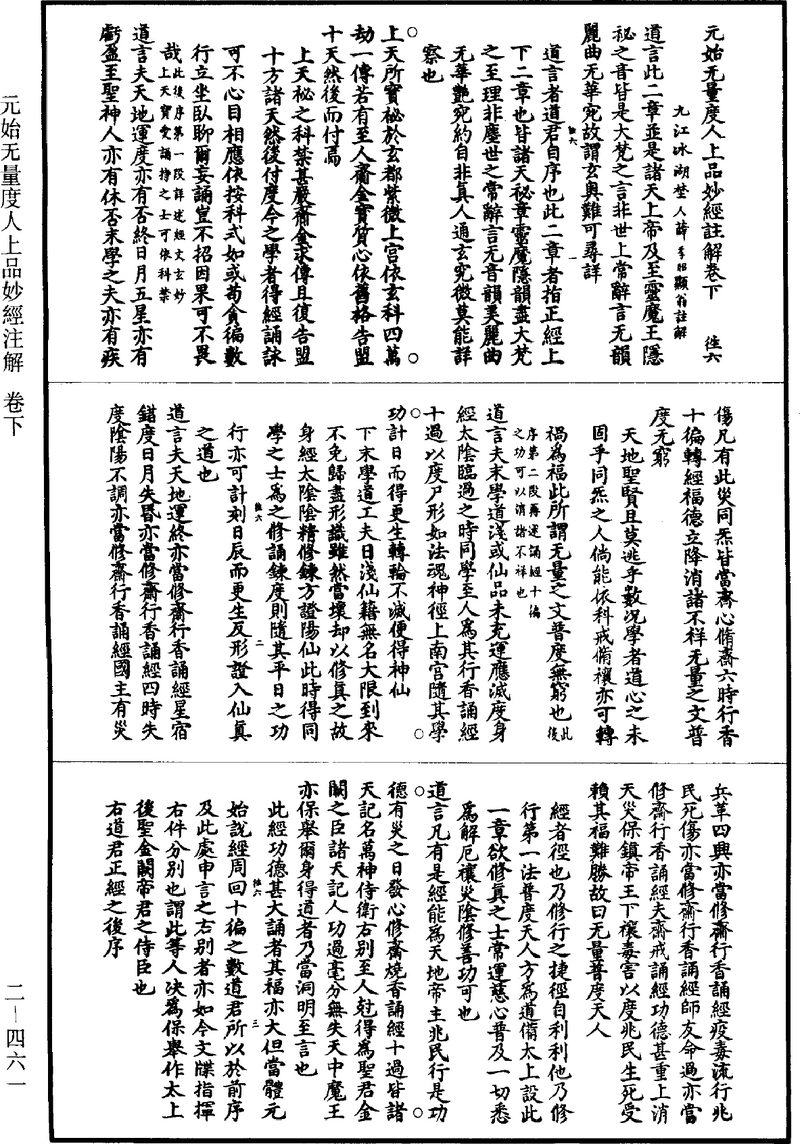 元始无量度人上品妙經註解卷下　往六
九江冰湖埜人薛季昭顯翁註解
道言此二章並是諸天上帝及至靈魔王隱
秘之音皆是大梵之言非世上常辭言无韻
麗曲无華宛故謂玄奥難可尋詳
道言者道君自序也此二章者指正經上
下二章也皆諸天秘章靈魔隱韻盡大梵
之至理非塵世之常辭言无音韻美麗曲
无華艷宛約自非真人通玄究微莫能詳
察也
上天所寳秘於玄都紫微上宫依玄科四萬
劫一傳若有至人齎金寳質心依舊格告盟
十天然後而付焉
上天秘之科禁甚嚴齎金求傳且復告盟
十方諸天然後付度今之學者得經誦詠
可不心目相應依按科式如或苟貪徧數
行立坐臥聊爾妄誦豈不招因果可不畏
哉此後序第一段詳述經文玄妙
上天寳愛誦持之士可依科禁
道言夫天地運度亦有否終日月五星亦有
虧盈至聖神人亦有休否末學之夫亦有疾
傷凡有此災同炁皆當齋心脩齋六時行香
十徧轉經福德立降消諸不祥无量之文普
度无窮
天地聖賢且莫逃乎數况學者道心之未
固乎同炁之人倘能依科戒脩禳亦可轉
禍為福此所謂无量之文普度無窮也此後
序第二段再述誦經十徧
之功可以消諸不祥也
道言夫末學道淺或仙品未充運應滅度身
經太陰臨過之時同學至人為其行香誦經
十過以度尸形如法魂神徑上南宫隨其學
功計日而得更生轉輪不滅便得神仙
下末學道工夫日淺仙藉無名大限到來
不免歸盡形識雖然當壞却以修真之故
身經太陰陰精修鍊方證陽仙此時得同
學之士為之修誦鍊度則隨其平日之功
行亦可計刻日辰而更生反形證入仙真
之道也
道言夫天地運終亦當修齋行香誦經星宿
錯度日月失昏亦當修齋行香誦經四時失
度陰陽不調亦當修齋行香誦經國主有災
兵革四興亦當修齋行香誦經疫毒流行兆
民死傷亦當修齋行香誦經師友命過亦當
修齋行香誦經夫齋戒誦經功德甚重上消
天災保鎮帝王下禳毒害以度兆民生死受
賴其福難勝故曰无量普度天人
經者徑也乃修行之捷徑自利利他乃修
行第一法普度天人方為道備太上設此
一章欲修真之士常運慈心普及一切悉
為解厄禳災陰修善功可也
道言凡有是經能為天地帝主兆民行是功
德有災之日發心修齋燒香誦經十過皆諸
天記名萬神侍衛右别至人尅得為聖君金
闕之臣諸天記人功過毫分無失天中魔王
亦保舉爾身得道者乃當洞明至言也
此經功德甚大誦者其福亦大但當體元
始說經周回十徧之數道君所以於前序
及此處申言之右別者亦如今文牒指揮
右件分別也謂此等人決為保舉作太上
後聖金闕帝君之侍臣也
右道君正經之後序
往六　一
往六　二
往六　三
元始无量度人上品妙經注解　卷下
二—四六一